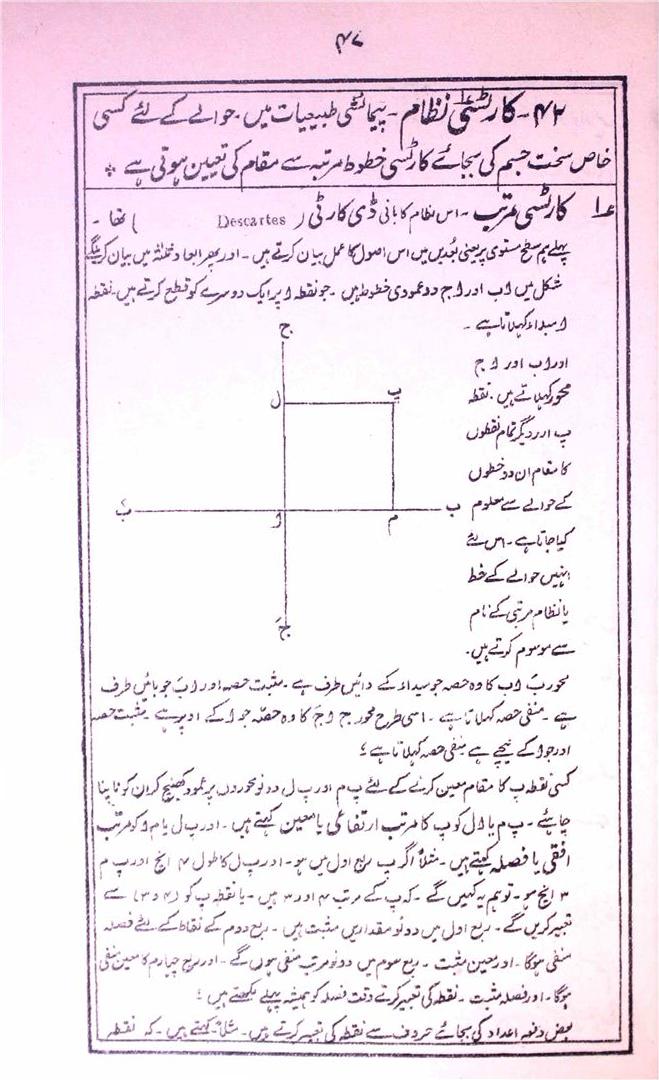 ۴۷
۴۲۔ کارٹسی نظام۔ پیمائشی طبیعیات میں۔ حوالے کے لئے کسی
خاص سخت جسم کی بجائے کارٹسی خطوط مرتبہ سے مقام کی تعیین ہوتی ہے *
۱ے کارٹسی مرتب۔ اس نظام کا بانی ڈی کارٹی (Descartes) تھا۔
پہلے ہم سطح مستوی پر یعنی بُعدیں میں اس اصول کا عمل بیان کرتے ہیں۔ اور پھر ابعاد ثلاثہ میں بیان کرینگے
شکل میں اب اور اج دو عمودی خطوط ہیں۔ جو نقطہ ا پر ایک دوسرے کو قطع کرتے ہیں۔ نقطہ
ا مبداء کہلاتا ہے۔
اور اب اور اج
محور کہلاتے ہیں۔ نقطہ
پ اور دیگر تمام نقطوں
کا مقام ان دو خطوں
کے حوالے سے معلوم
کیا جاتا ہے۔ اس لئے
انہیں حوالے کے خط
یا نظام مرتبی کے نام
سے موسوم کرتے ہیں۔
ج
ل
پ
بَ
ا
م
ب
جَ
محور بَ اب کا وہ حصہ جو مبداء کے دائیں طرف ہے۔ مثبت حصہ اور ابَ جو بائیں طرف
ہے۔ منفی حصہ کہلاتا ہے۔ اسی طرح محور ج اجَ کا وہ حصّہ جو ا کے اوپر ہے۔ مثبت حصہ
اور جو ا کے نیچے ہے منفی حصہ کہلاتا ہے ؛
کسی نقطہ پ کا مقام معین کرنے کے لئے پ م اور پ ل دونو محوروں پر عمود کھینچ کر ان کو ناپنا
چاہئے۔ پ م یا ال کو پ کا مرتب ارتفاعی یا معین کہتے ہیں۔ اور پ ل یا م ا کو مرتب
افقی یا فصلہ کہتے ہیں۔ مثلاً اگر پ ربع اول میں ہو۔ اور پ ل کا طول ۴ انچ اور پ م
۳ انچ ہو۔ تو ہم یہ کہیں گے۔ کہ پ کے مرتب ۴ اور ۳ ہیں۔ یا نقطہ پ کو (۴ و ۳) سے
تعبیر کریں گے۔ ربع اول میں دونو مقداریں مثبت ہیں۔ ربع دوم کے نقاط کے لئے فصلہ
منفی ہوگا۔ اور معین مثبت۔ ربع سوم میں دونو مرتب منفی ہوں گے۔ اور ربع چہارم کا معین منفی
ہوگا۔ اور فصلہ مثبت۔ نقطہ کی تعبیر کرتے وقت فصلہ کو ہمیشہ پہلے لکھتے ہیں ؛
بعض دفعہ اعداد کی بجائے حروف سے نقطہ کی تعبیر کرتے ہیں۔ مثلاً۔ کہتے ہیں۔ کہ نقطہ